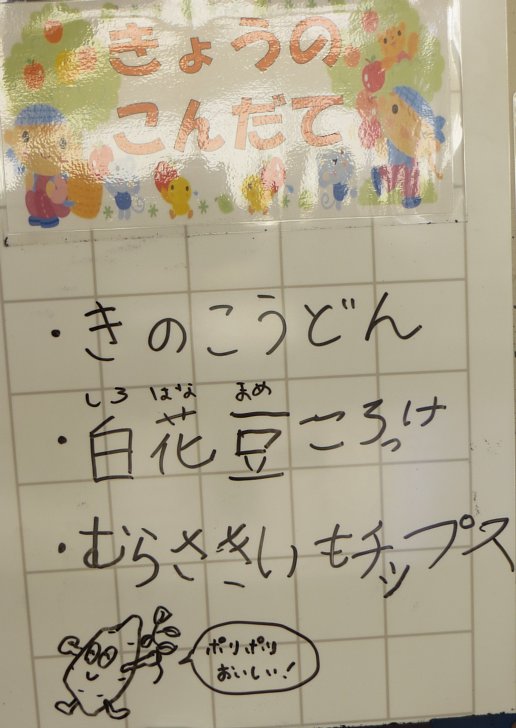 きょうの
こんだて
・きのこうどん
しろ はな まめ
・白花豆ころっけ
・むらさきいもチップス
ポリポリ
おいしい!